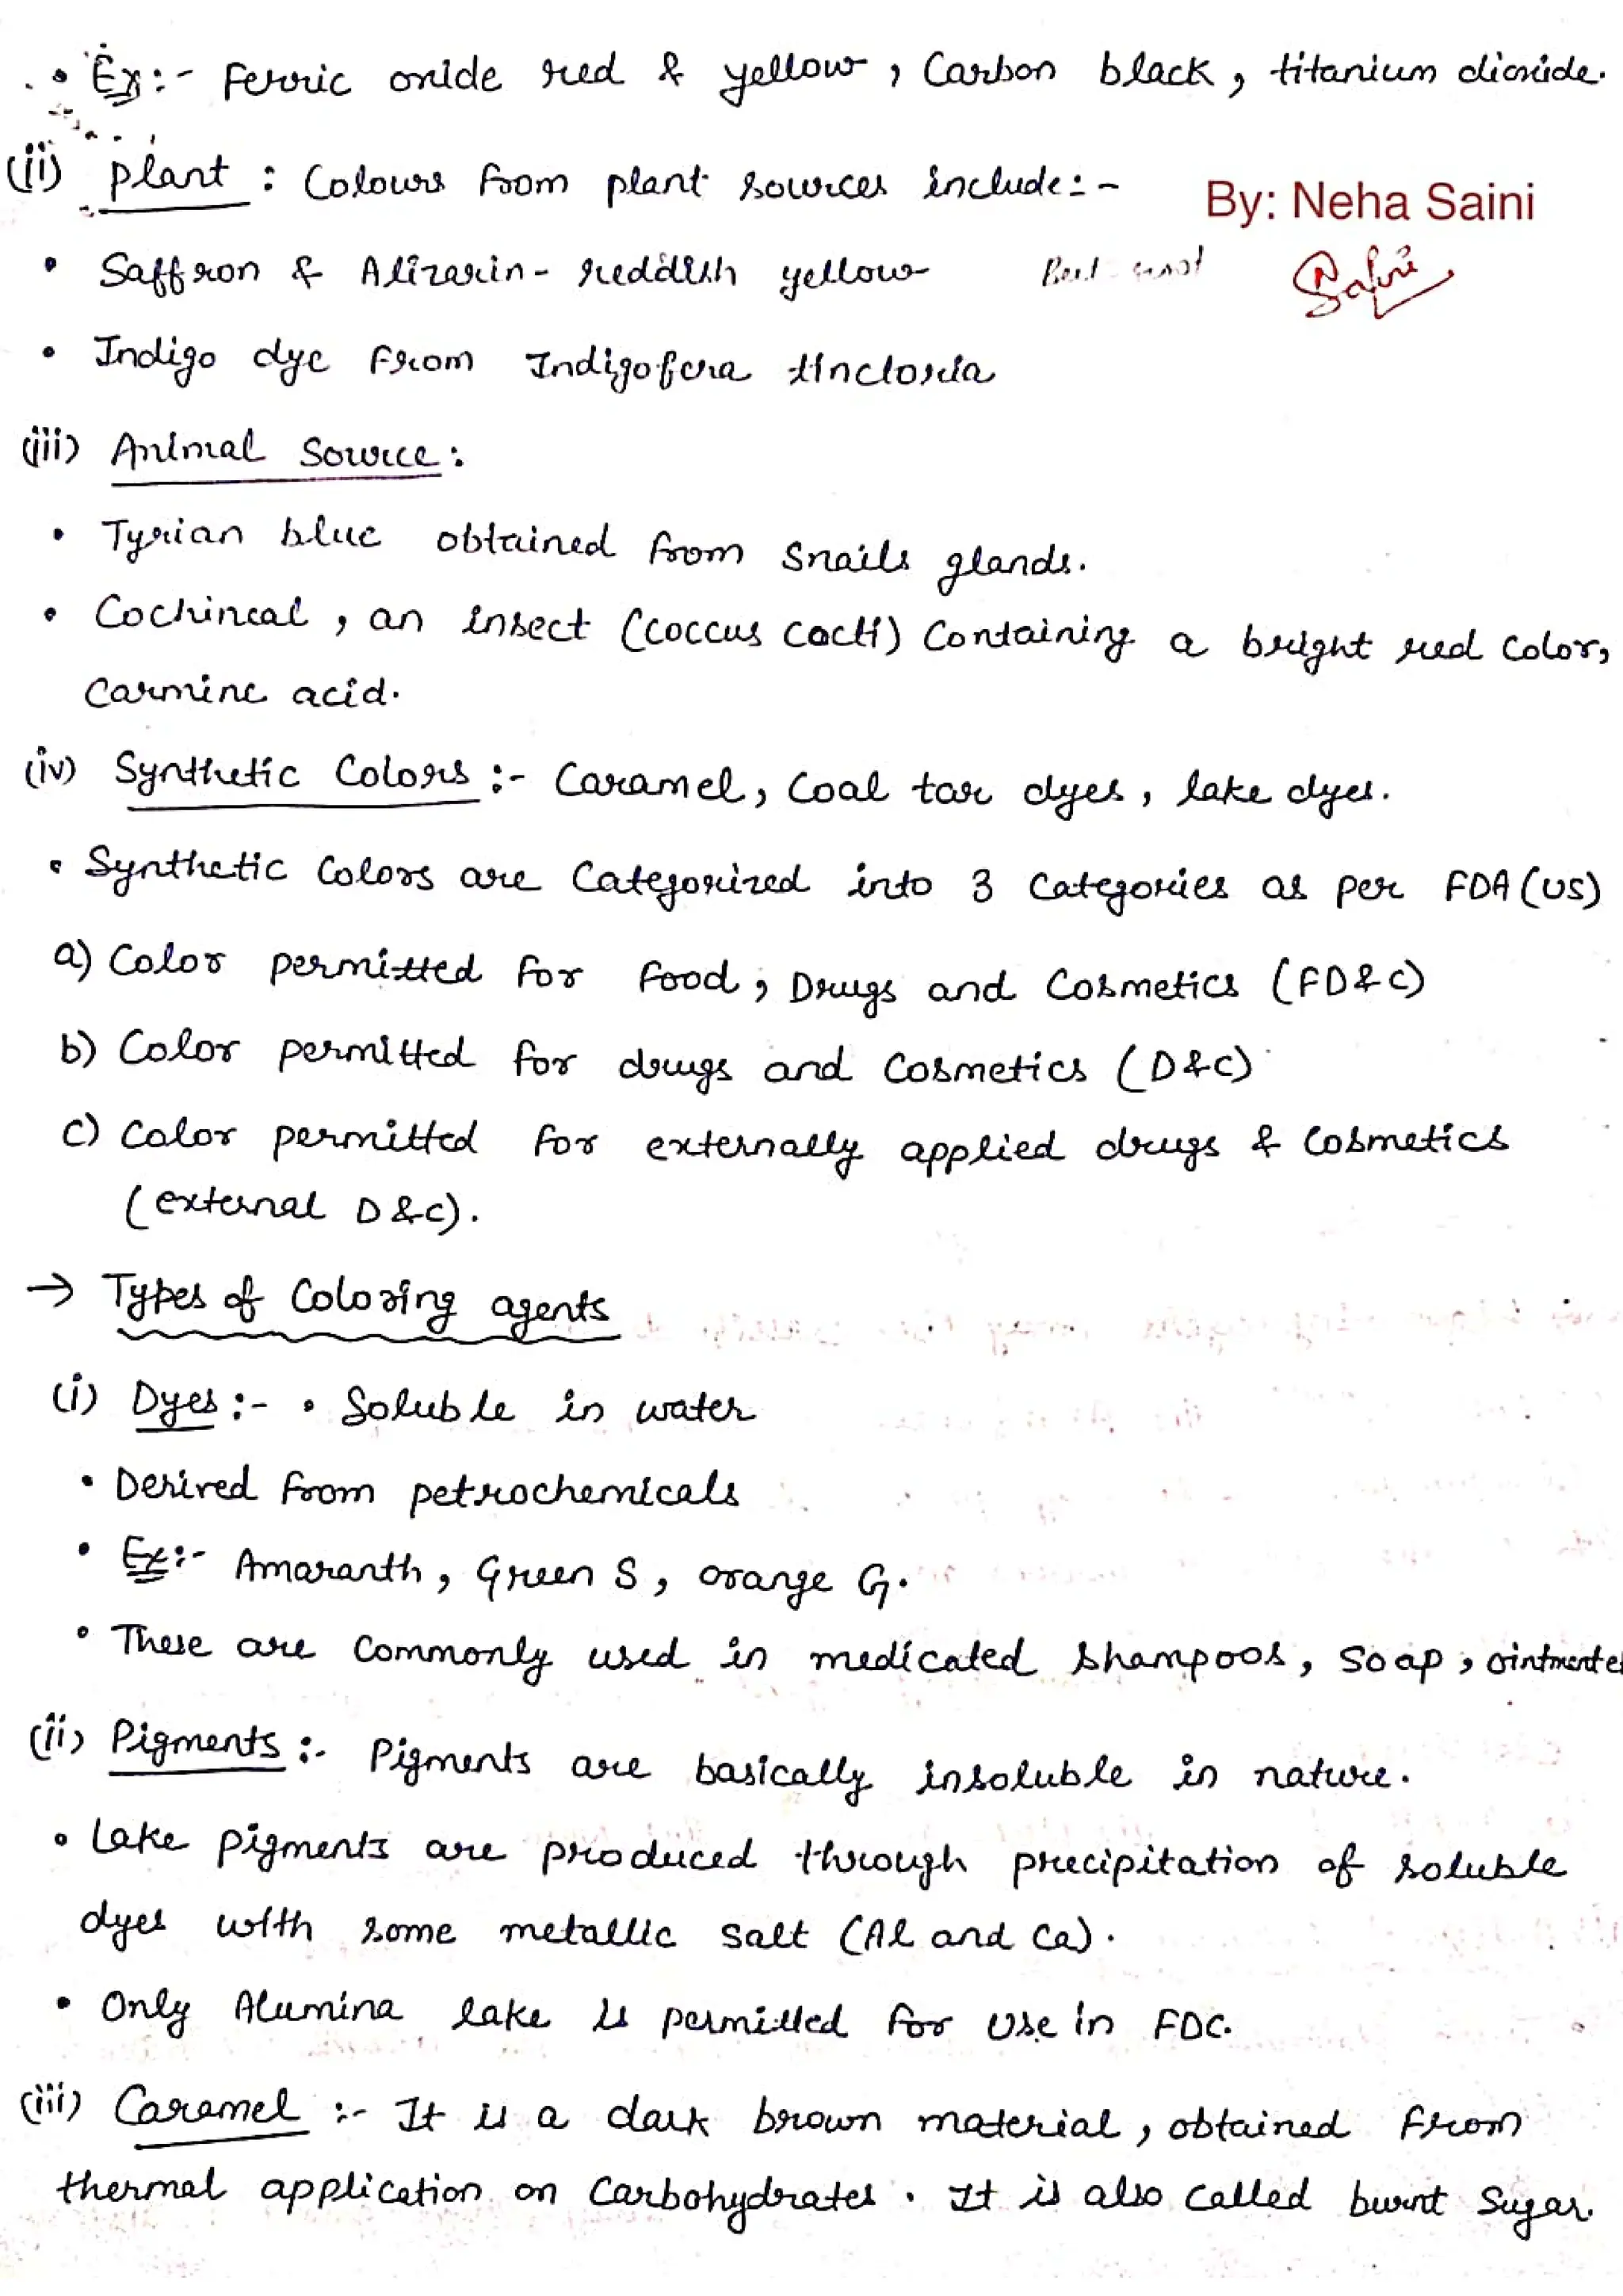 • Ex:- Ferric oxide red & yellow, Carbon black, titanium dioxide.
(ii) plant : Colours from plant sources include:-
By: Neha Saini
• Saffron & Alizarin- reddish yellow
Saini
• Indigo dye from Indigofera tinctoria
(iii) Animal Source:
• Tyrian blue obtained from Snails glands.
• Cochineal, an insect (coccus cacti) Containing a bright red color,
Carmine acid.
(iv) Synthetic Colors :- Caramel, Coal tar dyes, lake dyes.
• Synthetic Colors are Categorized into 3 Categories as per FDA (US)
a) Color permitted for food, Drugs and Cosmetics (FD&C)
b) Color permitted for drugs and Cosmetics (D&C)
c) Color permitted for externally applied drugs & Cosmetics
(external D&C).
→ Types of Coloring agents
(i) Dyes:- • Soluble in water
• Derived from petrochemicals
• Ex:- Amaranth, Green S, orange G.
• These are Commonly used in medicated shampoos, soap,
(ii) Pigments:- Pigments are basically insoluble in nature.
• Lake pigments are produced through precipitation of soluble
dyes with some metallic salt (Al and Ca).
• Only Alumina lake is permitted for use in FDC.
(iii) Caramel :- It is a dark brown material, obtained from
thermal application on Carbohydrates. It is also called burnt Sugar.